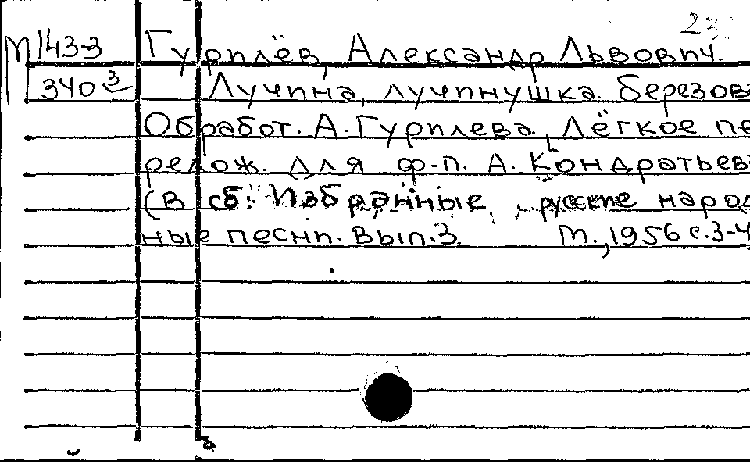 23
М 143-3 Гурилёв, Александр Львович.
340 3 Лучина, лучинушка березов
Обработ. А. Гурилева. Лёгкое пе
релож. для ф-п. А. Кондратьев
(В сб: Избранные русские народ
ные песни. Вып.3. М., 1956 с.3-4